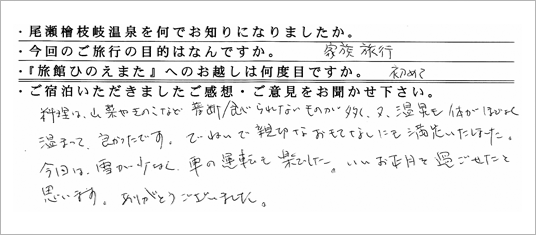 ・尾瀬檜枝岐温泉を何でお知りになりましたか。
・今回のご旅行の目的はなんですか。 家族旅行
・『旅館ひのえまた』へのお越しは何度目ですか。 初めて
・ご宿泊いただきましたご感想・ご意見をお聞かせ下さい。
料理は、山菜やきのこなど 普段食べられないものが多く、又、温泉も体がほどよく
温まって、良かったです。ていねいで親切なおもてなしにも満足いたしました。
今回は、雪が少なく、車の運転も楽でした。いいお正月を過ごせたと
思います。ありがとうございました。